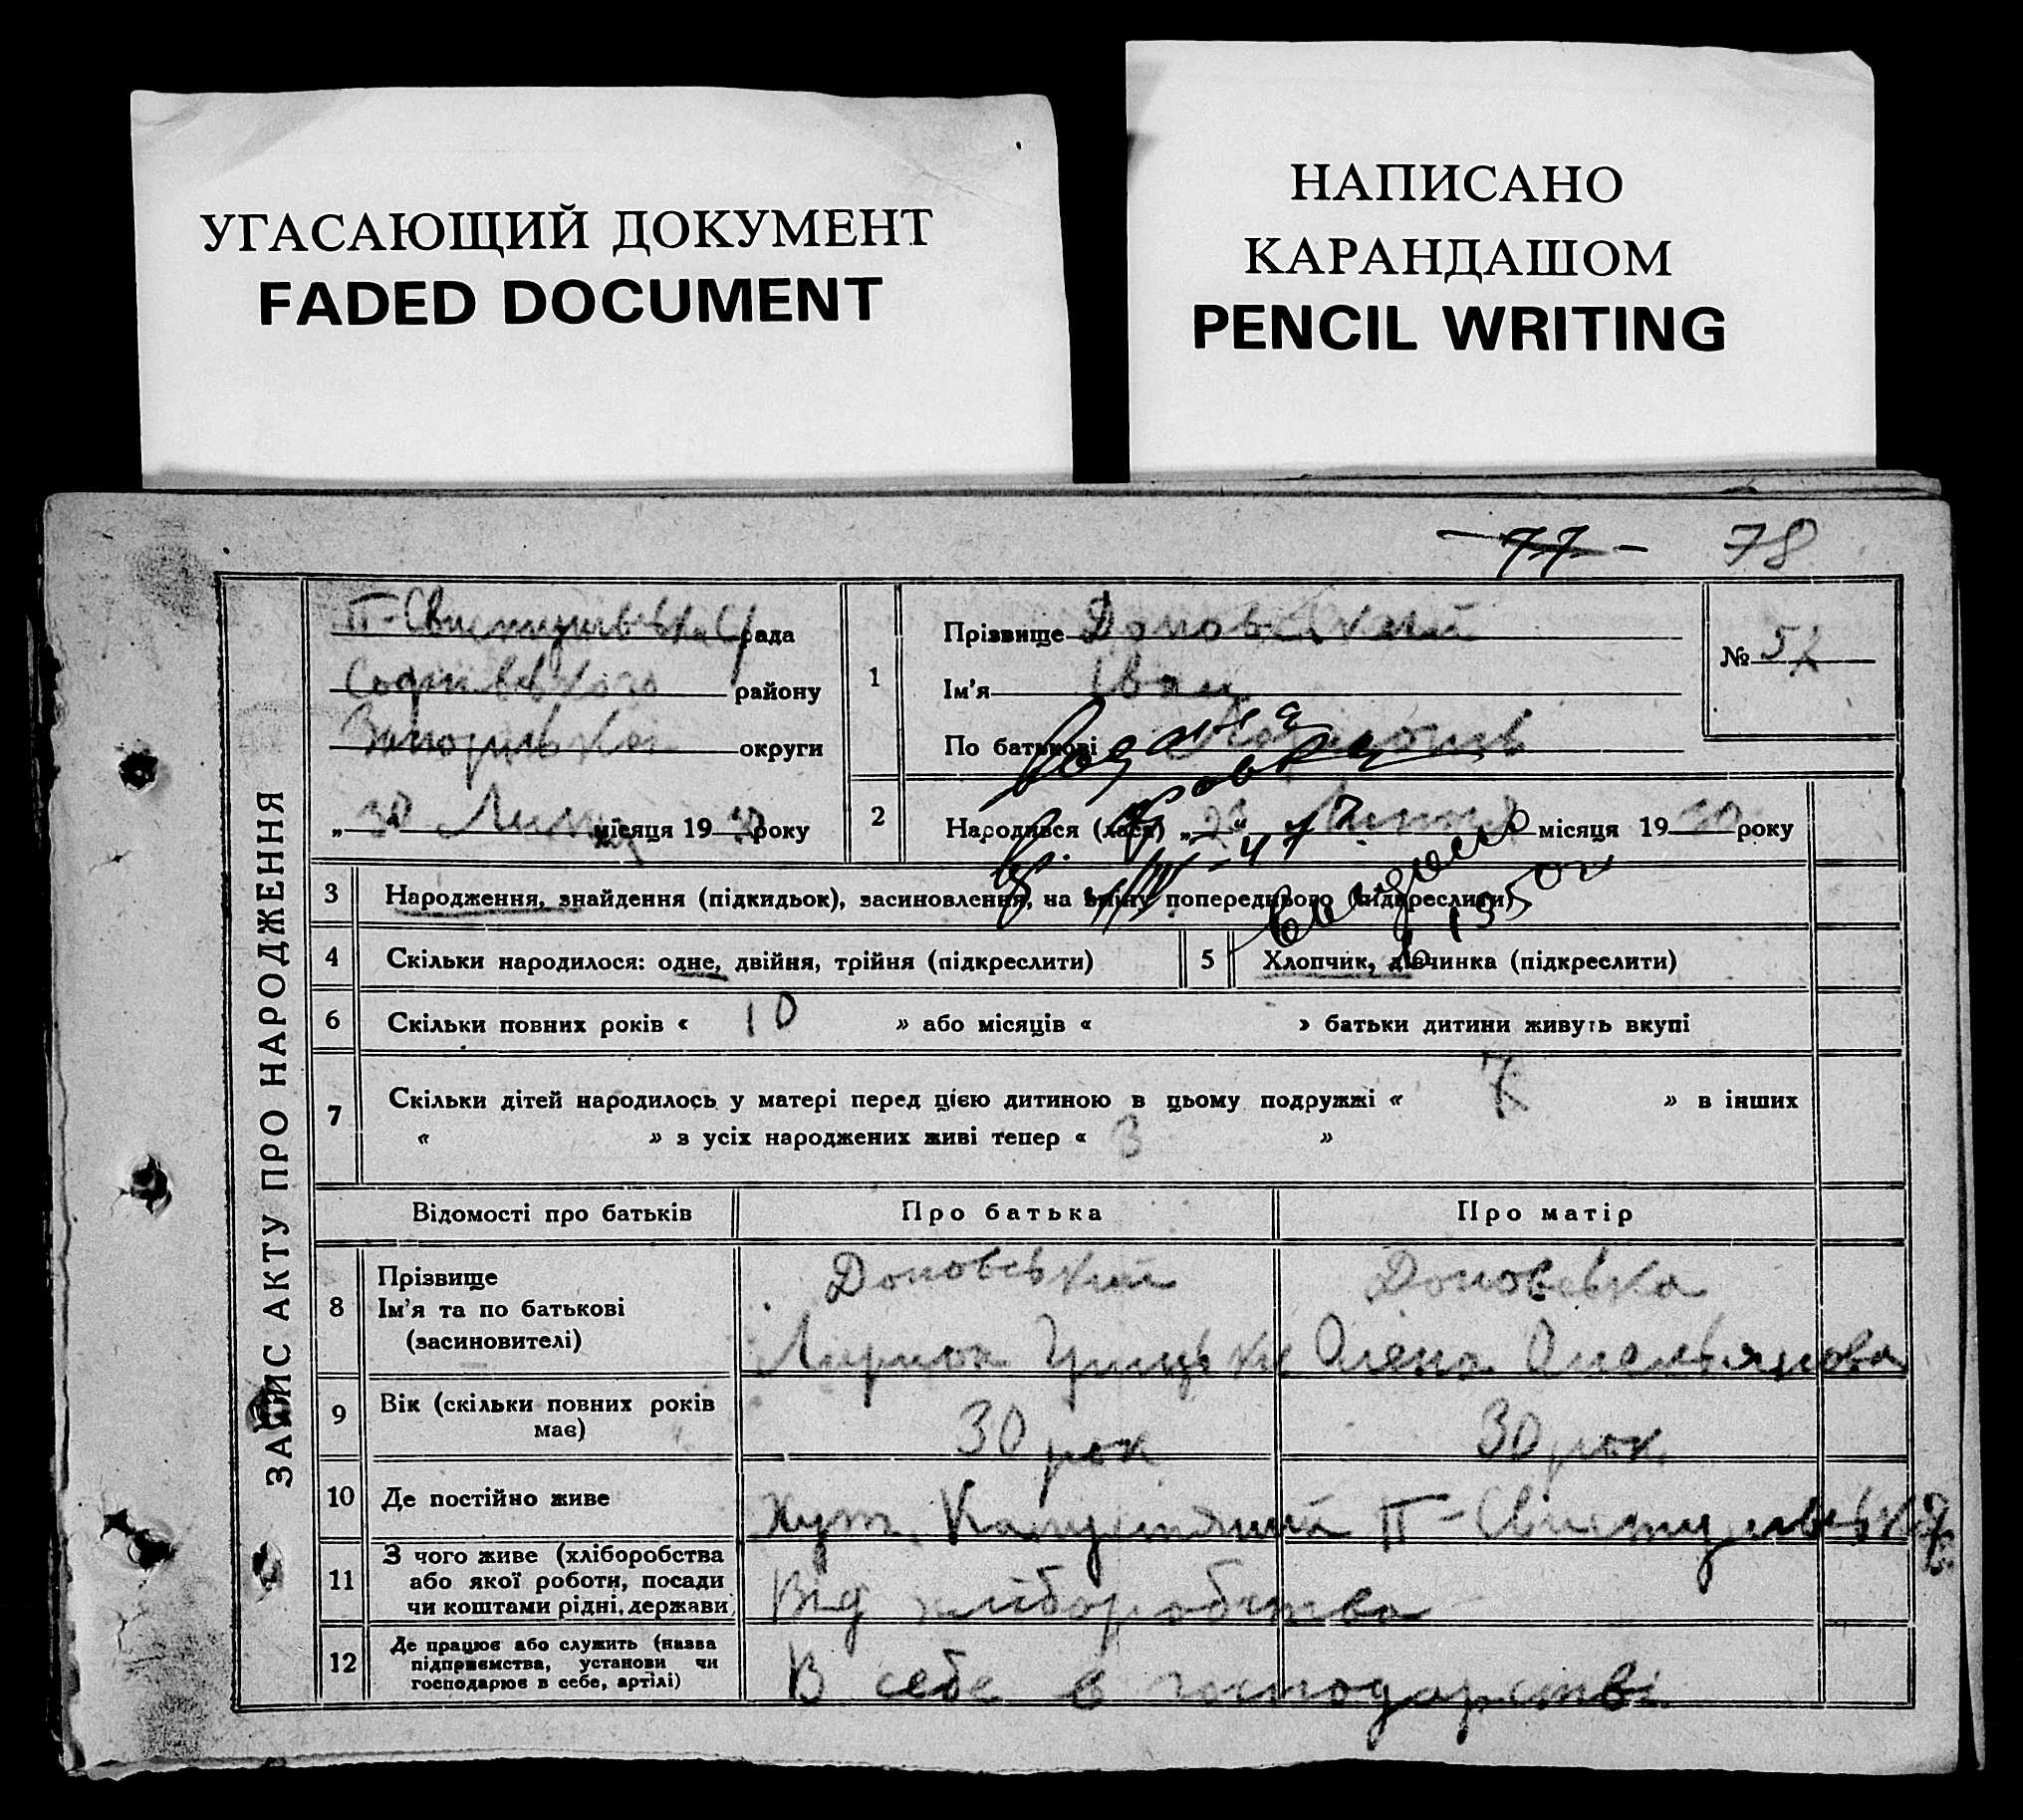 УГАСАЮЩИЙ ДОКУМЕНТ
FADED DOCUMENT
НАПИСАНО
КАРАНДАШОМ
PENCIL WRITING
77 78
ЗАПИС АКТУ ПРО НАРОДЖЕННЯ
рада
району
округи
„30“ місяця 19 30 року
1
Прізвище
Ім'я Іван
По батькові
№ 52
2
Народився (лася) „ “ місяця 19 30 року
3 Народження, знайдення (підкидьок), засиновлення, на зміну попереднього (підкреслити)
4 Скільки народилося: одне, двійня, трійня (підкреслити)
5 Хлопчик, дівчинка (підкреслити)
6 Скільки повних років « 10 » або місяців « » батьки дитини живуть вкупі
7 Скільки дітей народилось у матері перед цією дитиною в цьому подружжі « » в інших
« » з усіх народжених живі тепер « 3 »
Відомості про батьків Про батька Про матір
8 Прізвище
Ім'я та по батькові
(засиновителі)
Доповський
Доповська
Олена Омельянова
9 Вік (скільки повних років
має)
30 рок
30 рок
10 Де постійно живе
Хут.
11 З чого живе (хліборобства
або якої роботи, посади
чи коштами рідні, держави)
Від хліборобства
12 Де працює або служить (назва
підприємства, установи чи
господарює в себе, артілі)
В себе в господарстві